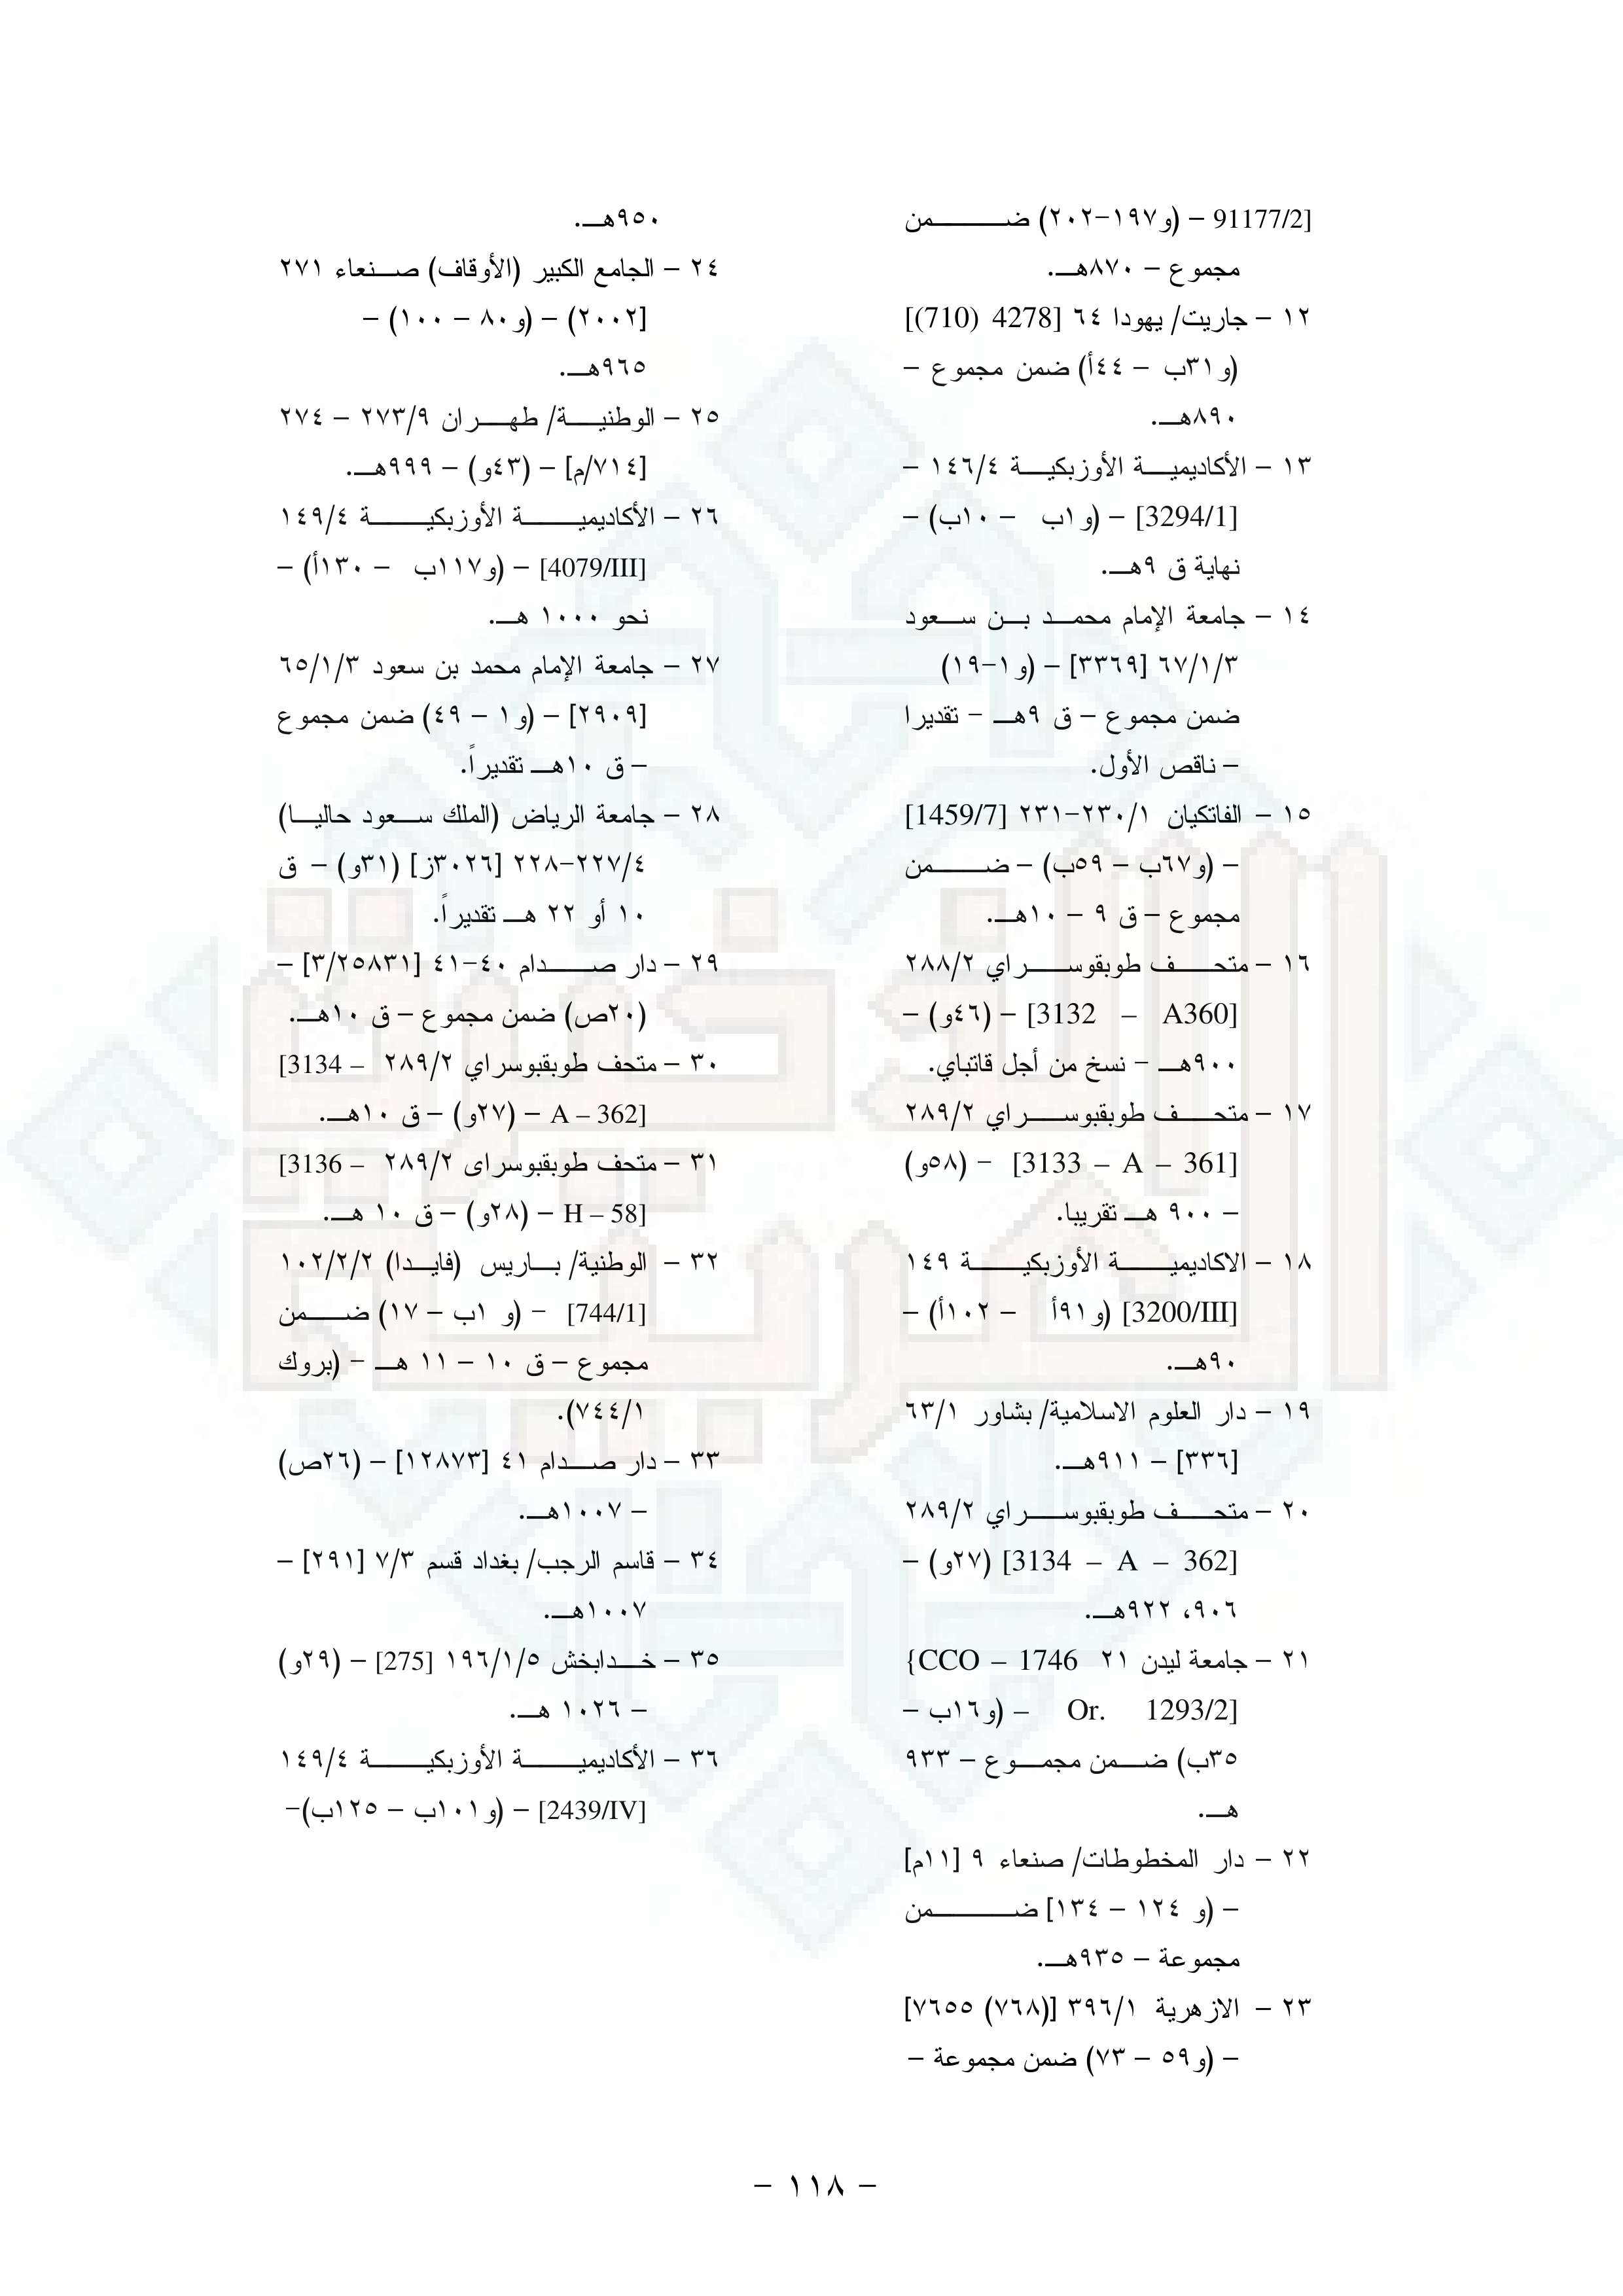 [91177/2 – (و١٩٧-٢٠٢) ضمن
مجموع – ٨٧٠هـ.
١٢ – جاريت/ يهودا ٦٤ [4278 (710)]
(و٣١ب – ٤٤أ) ضمن مجموع –
٨٩٠هـ.
١٣ – الأكاديمية الأوزبكية ١٤٦/٤ –
[3294/1] – (و١ب – ١٠ب) –
نهاية ق ٩هـ.
١٤ – جامعة الإمام محمد بن سعود
٦٧/١/٣ [٣٣٦٩] – (و١-١٩)
ضمن مجموع – ق ٩هـ – تقديرا
– ناقص الأول.
١٥ – الفاتكيان ٢٣٠/١-٢٣١ [1459/7]
– (و٦٧ب – ٥٩ب) – ضمن
مجموع – ق ٩ – ١٠هـ.
١٦ – متحف طوبقوسراي ٢٨٨/٢
[3132 – A360] – (٤٦و) –
٩٠٠هـ – نسخ من أجل قاتباي.
١٧ – متحف طوبقبوسراي ٢٨٩/٢
[3133 – A – 361] – (٥٨و)
– ٩٠٠ هـ تقريبا.
١٨ – الاكاديمية الأوزبكية ١٤٩
[3200/III] (و٩١أ – ١٠٢أ) –
٩٠هـ.
١٩ – دار العلوم الاسلامية/ بشاور ٦٣/١
[٣٣٦] – ٩١١هـ.
٢٠ – متحف طوبقبوسراي ٢٨٩/٢
[3134 – A – 362] (٢٧و) –
٩٠٦، ٩٢٢هـ.
٢١ – جامعة ليدن ٢١ CCO – 1746}
Or. 1293/2] – (و١٦ب –
٣٥ب) ضمن مجموع – ٩٣٣
هـ.
٢٢ – دار المخطوطات/ صنعاء ٩ [١١م]
– (و ١٢٤ – ١٣٤] ضمن
مجموعة – ٩٣٥هـ.
٢٣ – الازهرية ٣٩٦/١ [(٧٦٨) ٧٦٥٥]
– (و٥٩ – ٧٣) ضمن مجموعة –
٩٥٠هـ.
٢٤ – الجامع الكبير (الأوقاف) صنعاء ٢٧١
[٢٠٠٢) – (و٨٠ – ١٠٠) –
٩٦٥هـ.
٢٥ – الوطنية/ طهران ٢٧٣/٩ – ٢٧٤
[٧١٤/م] – (٤٣و) – ٩٩٩هـ.
٢٦ – الأكاديمية الأوزبكية ١٤٩/٤
[4079/III] – (و١١٧ب – ١٣٠أ) –
نحو ١٠٠٠ هـ.
٢٧ – جامعة الإمام محمد بن سعود ٦٥/١/٣
[٢٩٠٩] – (و١ – ٤٩) ضمن مجموع
– ق ١٠هـ تقديراً.
٢٨ – جامعة الرياض (الملك سعود حاليا)
٢٢٧/٤-٢٢٨ [٣٠٢٦ز] (٣١و) – ق
١٠ أو ٢٢ هـ تقديراً.
٢٩ – دار صدام ٤٠-٤١ [٣/٢٥٨٣١] –
(٢٠ص) ضمن مجموع – ق ١٠هـ.
٣٠ – متحف طوبقبوسراي ٢٨٩/٢ [3134 –
A – 362] – (٢٧و) – ق ١٠هـ.
٣١ – متحف طوبقبوسراى ٢٨٩/٢ [3136 –
H – 58] – (٢٨و) – ق ١٠ هـ.
٣٢ – الوطنية/ باريس (فايدا) ١٠٢/٢/٢
[744/1] – (و ١ب – ١٧) ضمن
مجموع – ق ١٠ – ١١ هـ – (بروك
٧٤٤/١).
٣٣ – دار صدام ٤١ [١٢٨٧٣] – (٢٦ص)
– ١٠٠٧هـ.
٣٤ – قاسم الرجب/ بغداد قسم ٧/٣ [٢٩١] –
١٠٠٧هـ.
٣٥ – خدابخش ١٩٦/١/٥ [275] – (٢٩و)
– ١٠٢٦ هـ.
٣٦ – الأكاديمية الأوزبكية ١٤٩/٤
[2439/IV] – (و١٠١ب – ١٢٥ب)-
– ١١٨ –